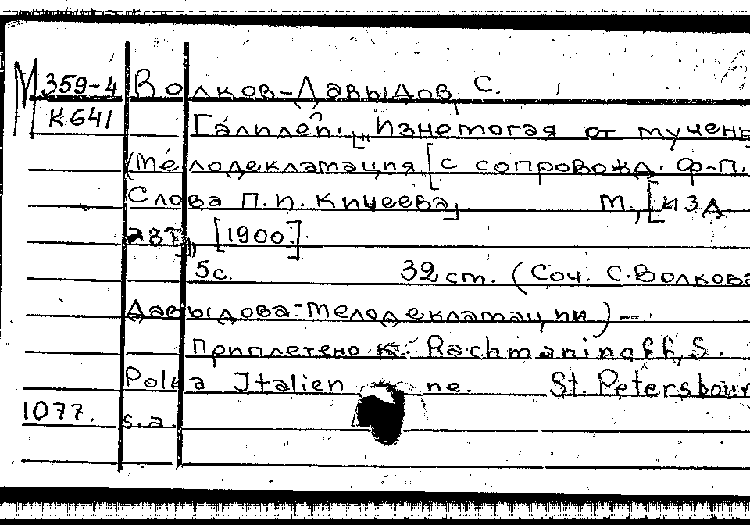 М 359-4 Волков-Давыдов, С.
К641 Галилей. „Изнемогая от мучень
(Мелодекламация [с сопровожд. ф-п.
Слова П.И. Кичеева] М., [изд
авт., [1900.]
5с. 32 ст. (Соч. С. Волкова
Давыдова-Мелодекламации) —
Приплетено к: Rachmaninoff, S.
Polka Italienne. St. Petersbour
1077. s.a.